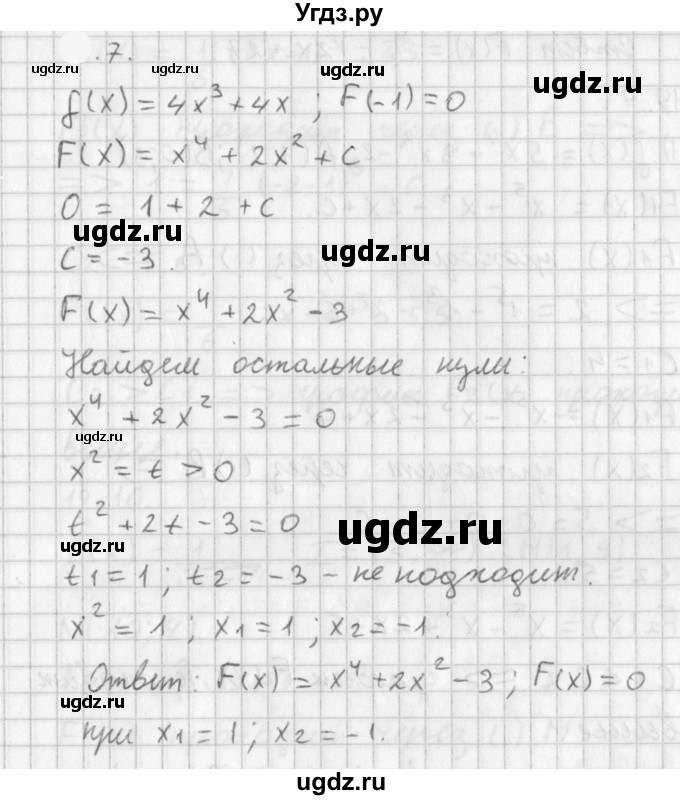 Угдз.ру
.7.
ugdz.ru ugdz.ru ugdz.ru ugdz.ru
f(x) = 4x³ + 4x ; F(-1) = 0
F(x) = x⁴ + 2x² + C
0 = 1 + 2 + C
ugdz.ru ugdz.ru
C = -3.
F(x) = x⁴ + 2x² - 3
Найдем остальные нули:
x⁴ + 2x² - 3 = 0
ugdz.ru
x² = t > 0
t² + 2t - 3 = 0
ugdz.ru ugdz.ru
t1 = 1 ; t2 = -3 - не подходит.
x² = 1 ; x1 = 1 ; x2 = -1.
Ответ: F(x) = x⁴ + 2x² - 3 ; F(x) = 0
ugdz.ru
при x1 = 1 ; x2 = -1.
ugdz.ru